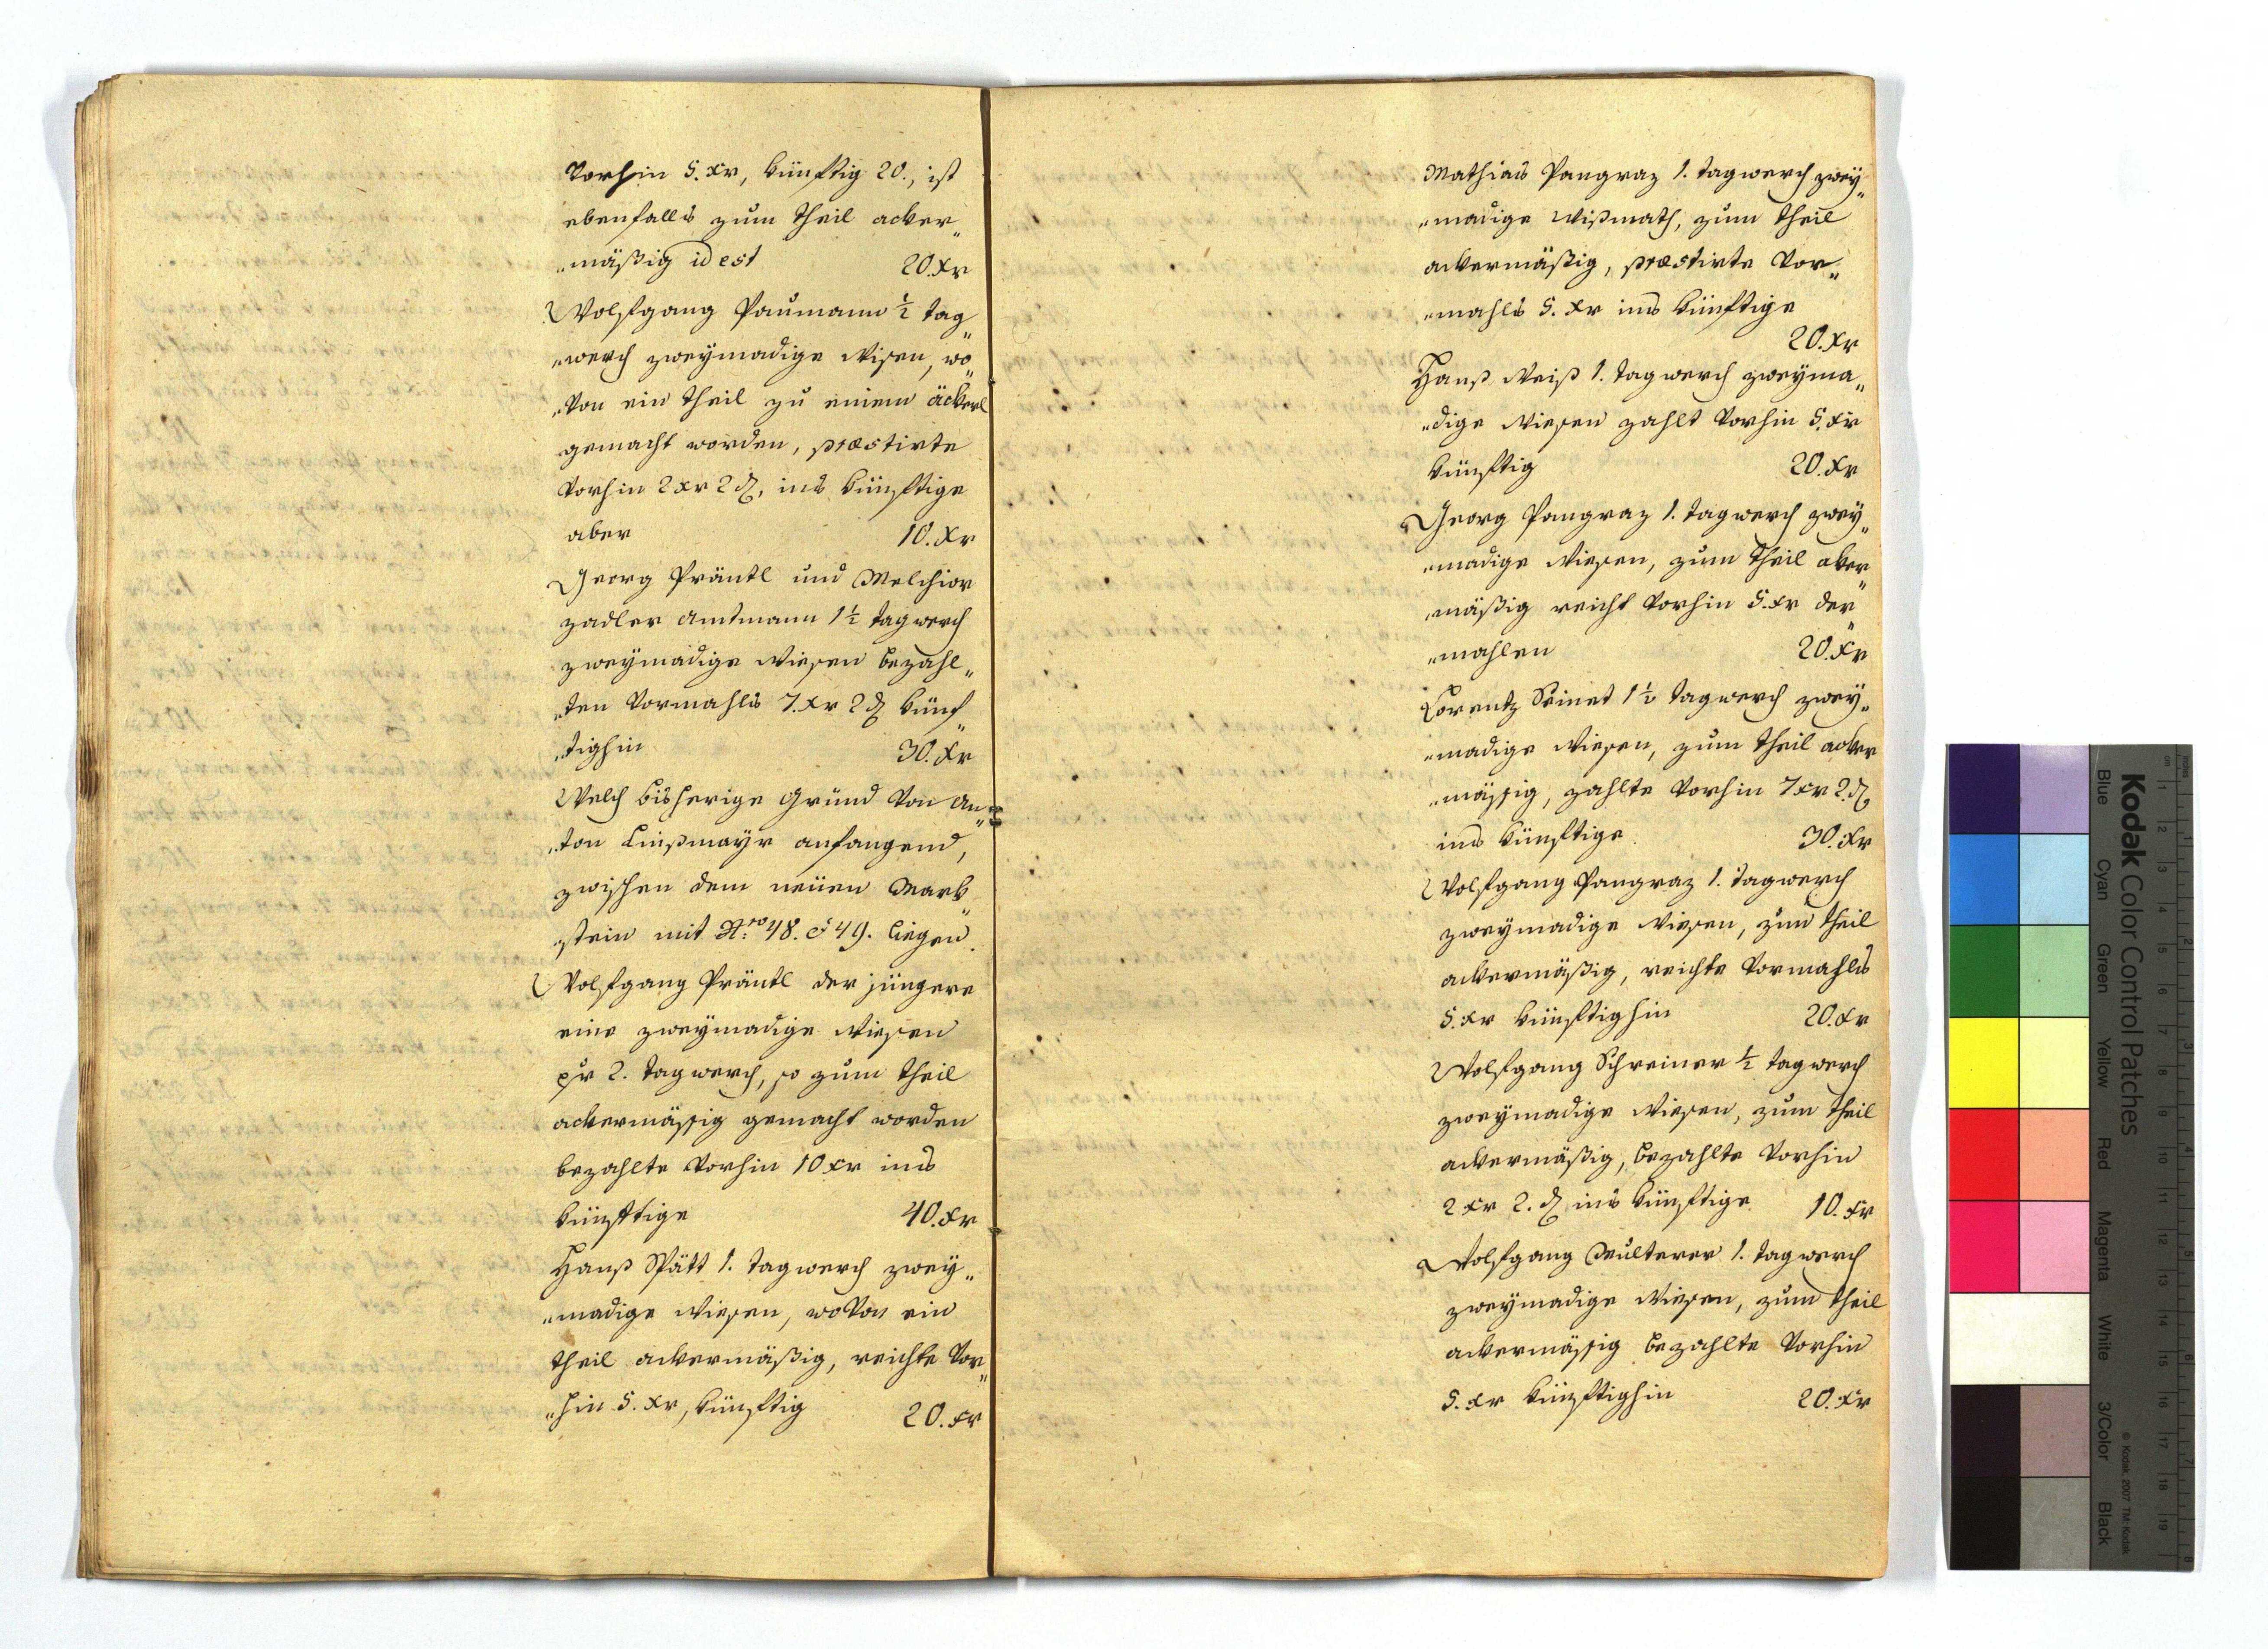 Vorhin 5. xr, künftig 20., ist
ebenfalls zum Theil acker„
„mäßig id est 20. xr
Wolfgang Paumann ½ tag„
„werch zweymadige Wisen, wo„
„Von ein Theil zu einem äckerl
gemacht worden, præstirte
Vorhin 2 xr 2 ₰, ins künftige
aber 10. xr
Georg Präntl und Melchior
Zadler Amtmann 1½ tagwerch
zweymadige Wiesen bezahl„
„ten Vormahls 7. xr 2 ₰ künf„
„tighin 30. xr
Welch bisherige Gründ Von An„
„ton Linßmayr anfangend,
zwischen dem neüen Mark„
„stein mit N:ro 48. & 49. liegen.
Wolfgang Präntl der jüngere
eine zweymadige Wiesen
pr 2. Tagwerch, so zum Theil
ackermässig gemacht worden
bezahlte Vorhin 10 xr ins
künftige 40. xr
Hanß Spätt 1. Tagwerch zwey„
„madige Wiesen, woVon ein
Theil ackermäßig, reichte Vor„
„hin 5. xr, künftig 20. xr
Mathias Pangraz 1. tagwerch zwey„
„madige Wißmath, zum Theil
ackermäßig, præstirte Vor„
„mahls 5. xr ins künftige
20. xr
Hanß Weiß 1. Tagwerch zweyma„
„dige Wiesen zahlt Vorhin 5. xr
künftig 20. xr
Georg Pangraz 1. Tagwerch zwey„
„madige Wiesen, zum Theil aker„
„mäßig reicht Vorhin 5. xr der„
„mahlen 20. xr
Lorentz 1½ Tagwerch zwey„
„madige Wiesen, zum Theil acker
„mässig, zahlte Vorhin 7 xr 2. ₰
ins künftige 30. xr
Wolfgang Pangraz 1. Tagwerch
zweymadige Wiesen, zum Theil
ackermäßig, reichte Vormahls
5. xr künftighin 20. xr
Wolfgang Schreiner ½ tagwerch
zweymadige Wiesen, zum Theil
ackermäßig, bezahlte Vorhin
2 xr 2. ₰ ins künftige 10. xr
Wolfgang Multerer 1. Tagwerch
zweymadige Wiesen, zum Theil
ackermässig bezahlte Vorhin
5. xr künftighin 20. xr
Kodak Color Control Patches
© Kodak, 2007 TM: Kodak
Blue Cyan Green Yellow Red Magenta White 3/Color Black
cm 1 2 3 4 5 6 7 8 9 10 11 12 13 14 15 16 17 18 19
inches 1 2 3 4 5 6 7 8